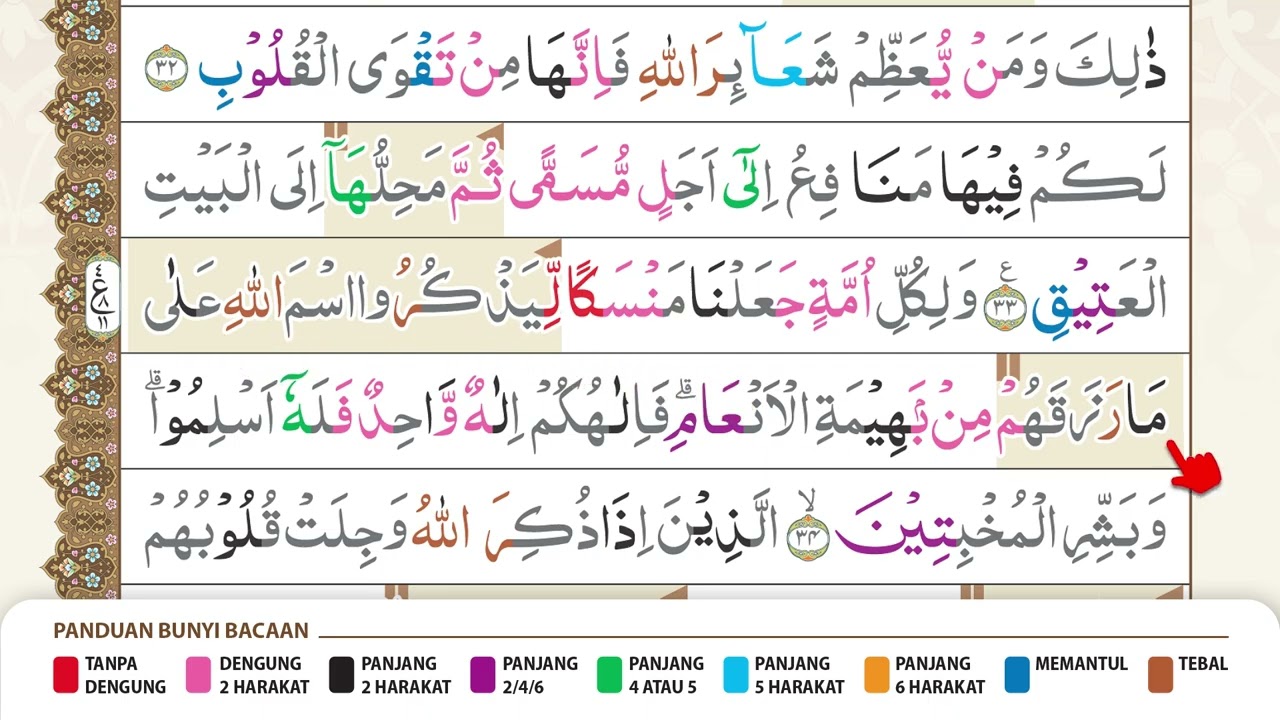 ذٰلِكَ وَمَنْ يُّعَظِّمْ شَعَاۤىِٕرَ اللّٰهِ فَاِنَّهَا مِنْ تَقْوَى الْقُلُوْبِ ٣٢
لَكُمْ فِيْهَا مَنَافِعُ اِلٰٓى اَجَلٍ مُّسَمًّى ثُمَّ مَحِلُّهَآ اِلَى الْبَيْتِ
الْعَتِيْقِ ࣖ ٣٣ وَلِكُلِّ اُمَّةٍ جَعَلْنَا مَنْسَكًا لِّيَذْكُرُوا اسْمَ اللّٰهِ عَلٰى
مَا رَزَقَهُمْ مِّنْۢ بَهِيْمَةِ الْاَنْعَامِۗ فَاِلٰهُكُمْ اِلٰهٌ وَّاحِدٌ فَلَهٗٓ اَسْلِمُوْاۗ
وَبَشِّرِ الْمُخْبِتِيْنَ ۙ ٣٤ الَّذِيْنَ اِذَا ذُكِرَ اللّٰهُ وَجِلَتْ قُلُوْبُهُمْ
٤
ع ٨
١١
PANDUAN BUNYI BACAAN
TANPA DENGUNG
DENGUNG 2 HARAKAT
PANJANG 2 HARAKAT
PANJANG 2/4/6
PANJANG 4 ATAU 5
PANJANG 5 HARAKAT
PANJANG 6 HARAKAT
MEMANTUL
TEBAL